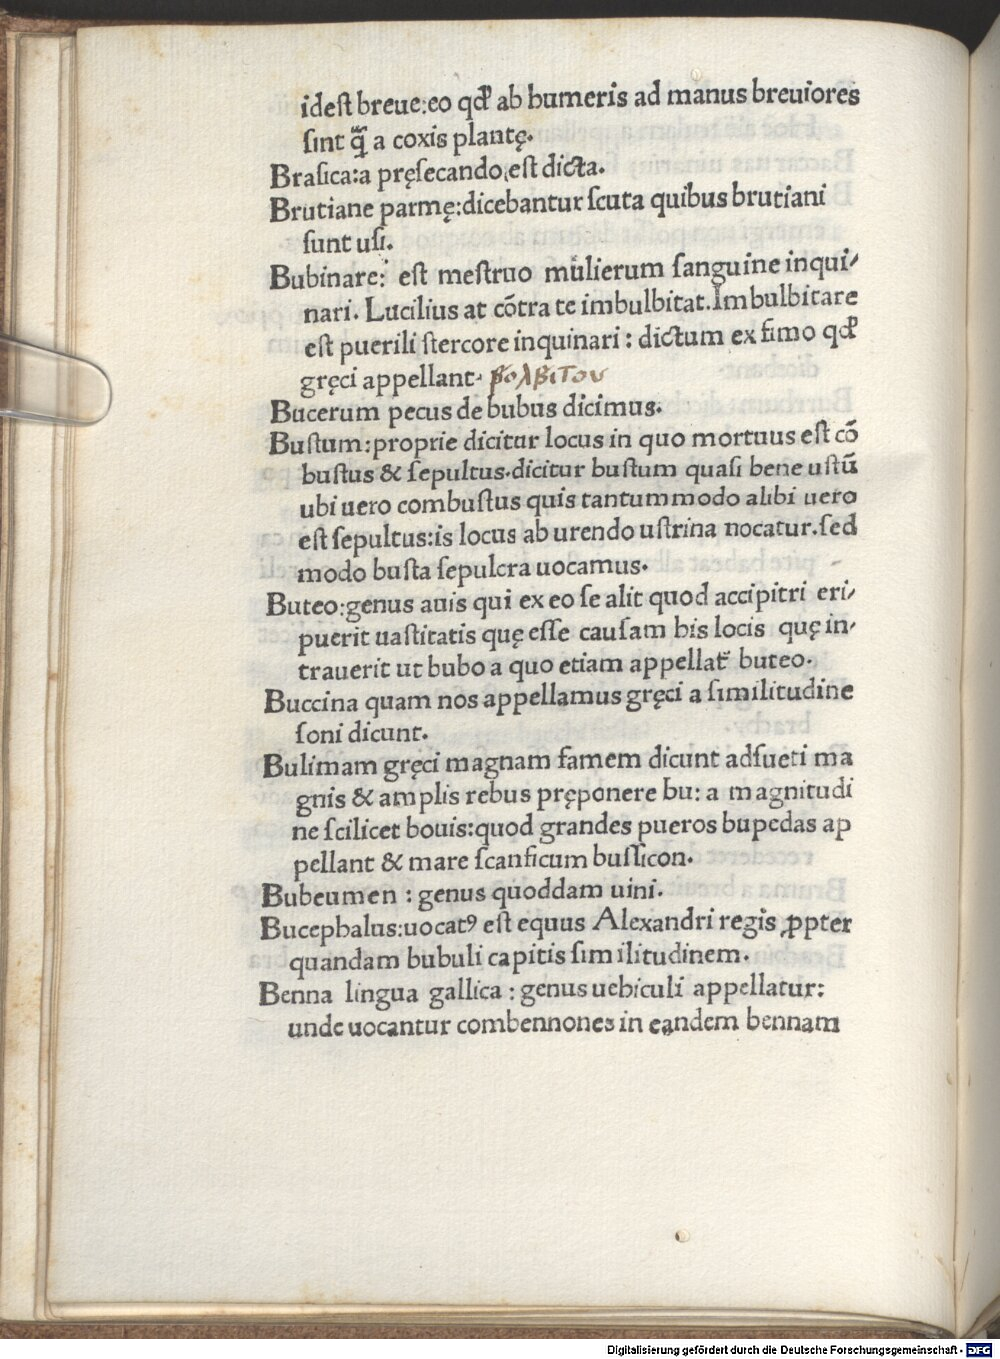 idest breue:eo qď ab humeris ad manus breuiores
sint q̃ a coxis plantę.
Brasica:a pręsecando est dicta.
Brutiane parmę:dicebantur scuta quibus brutiani
sunt usi.
Bubinare: est mestruo mulierum sanguine inqui⸗
nari. Lucilius at cōtra te imbulbitat.Imbulbitare
est puerili stercore inquinari : dictum ex fimo qď
gręci appellant. βολβιτου
Bucerum pecus de bubus dicimus.
Bustum:proprie dicitur locus in quo mortuus est cō
bustus & sepultus.dicitur bustum quasi bene ustū
ubi uero combustus quis tantummodo alibi uero
est sepultus:is locus ab urendo ustrina nocatur.sed
modo busta sepulcra uocamus.
Buteo:genus auis qui ex eo se alit quod accipitri eri⸗
puerit uastitatis quę esse causam his locis quę in⸗
trauerit ut bubo a quo etiam appellat᷑ buteo.
Buccina quam nos appellamus gręci a similitudine
soni dicunt.
Bulimam gręci magnam famem dicunt adsueti ma
gnis & amplis rebus pręponere bu: a magnitudi
ne scilicet bouis:quod grandes pueros bupedas ap
pellant & mare scanficum bussicon.
Bubeumen : genus quoddam uini.
Bucephalus:uocatꝰ est equus Alexandri regis ꝓpter
quandam bubuli capitis similitudinem.
Benna lingua gallica : genus uehiculi appellatur:
unde uocantur combennones in eandem bennam
Digitalisierung gefördert durch die Deutsche Forschungsgemeinschaft - DFG